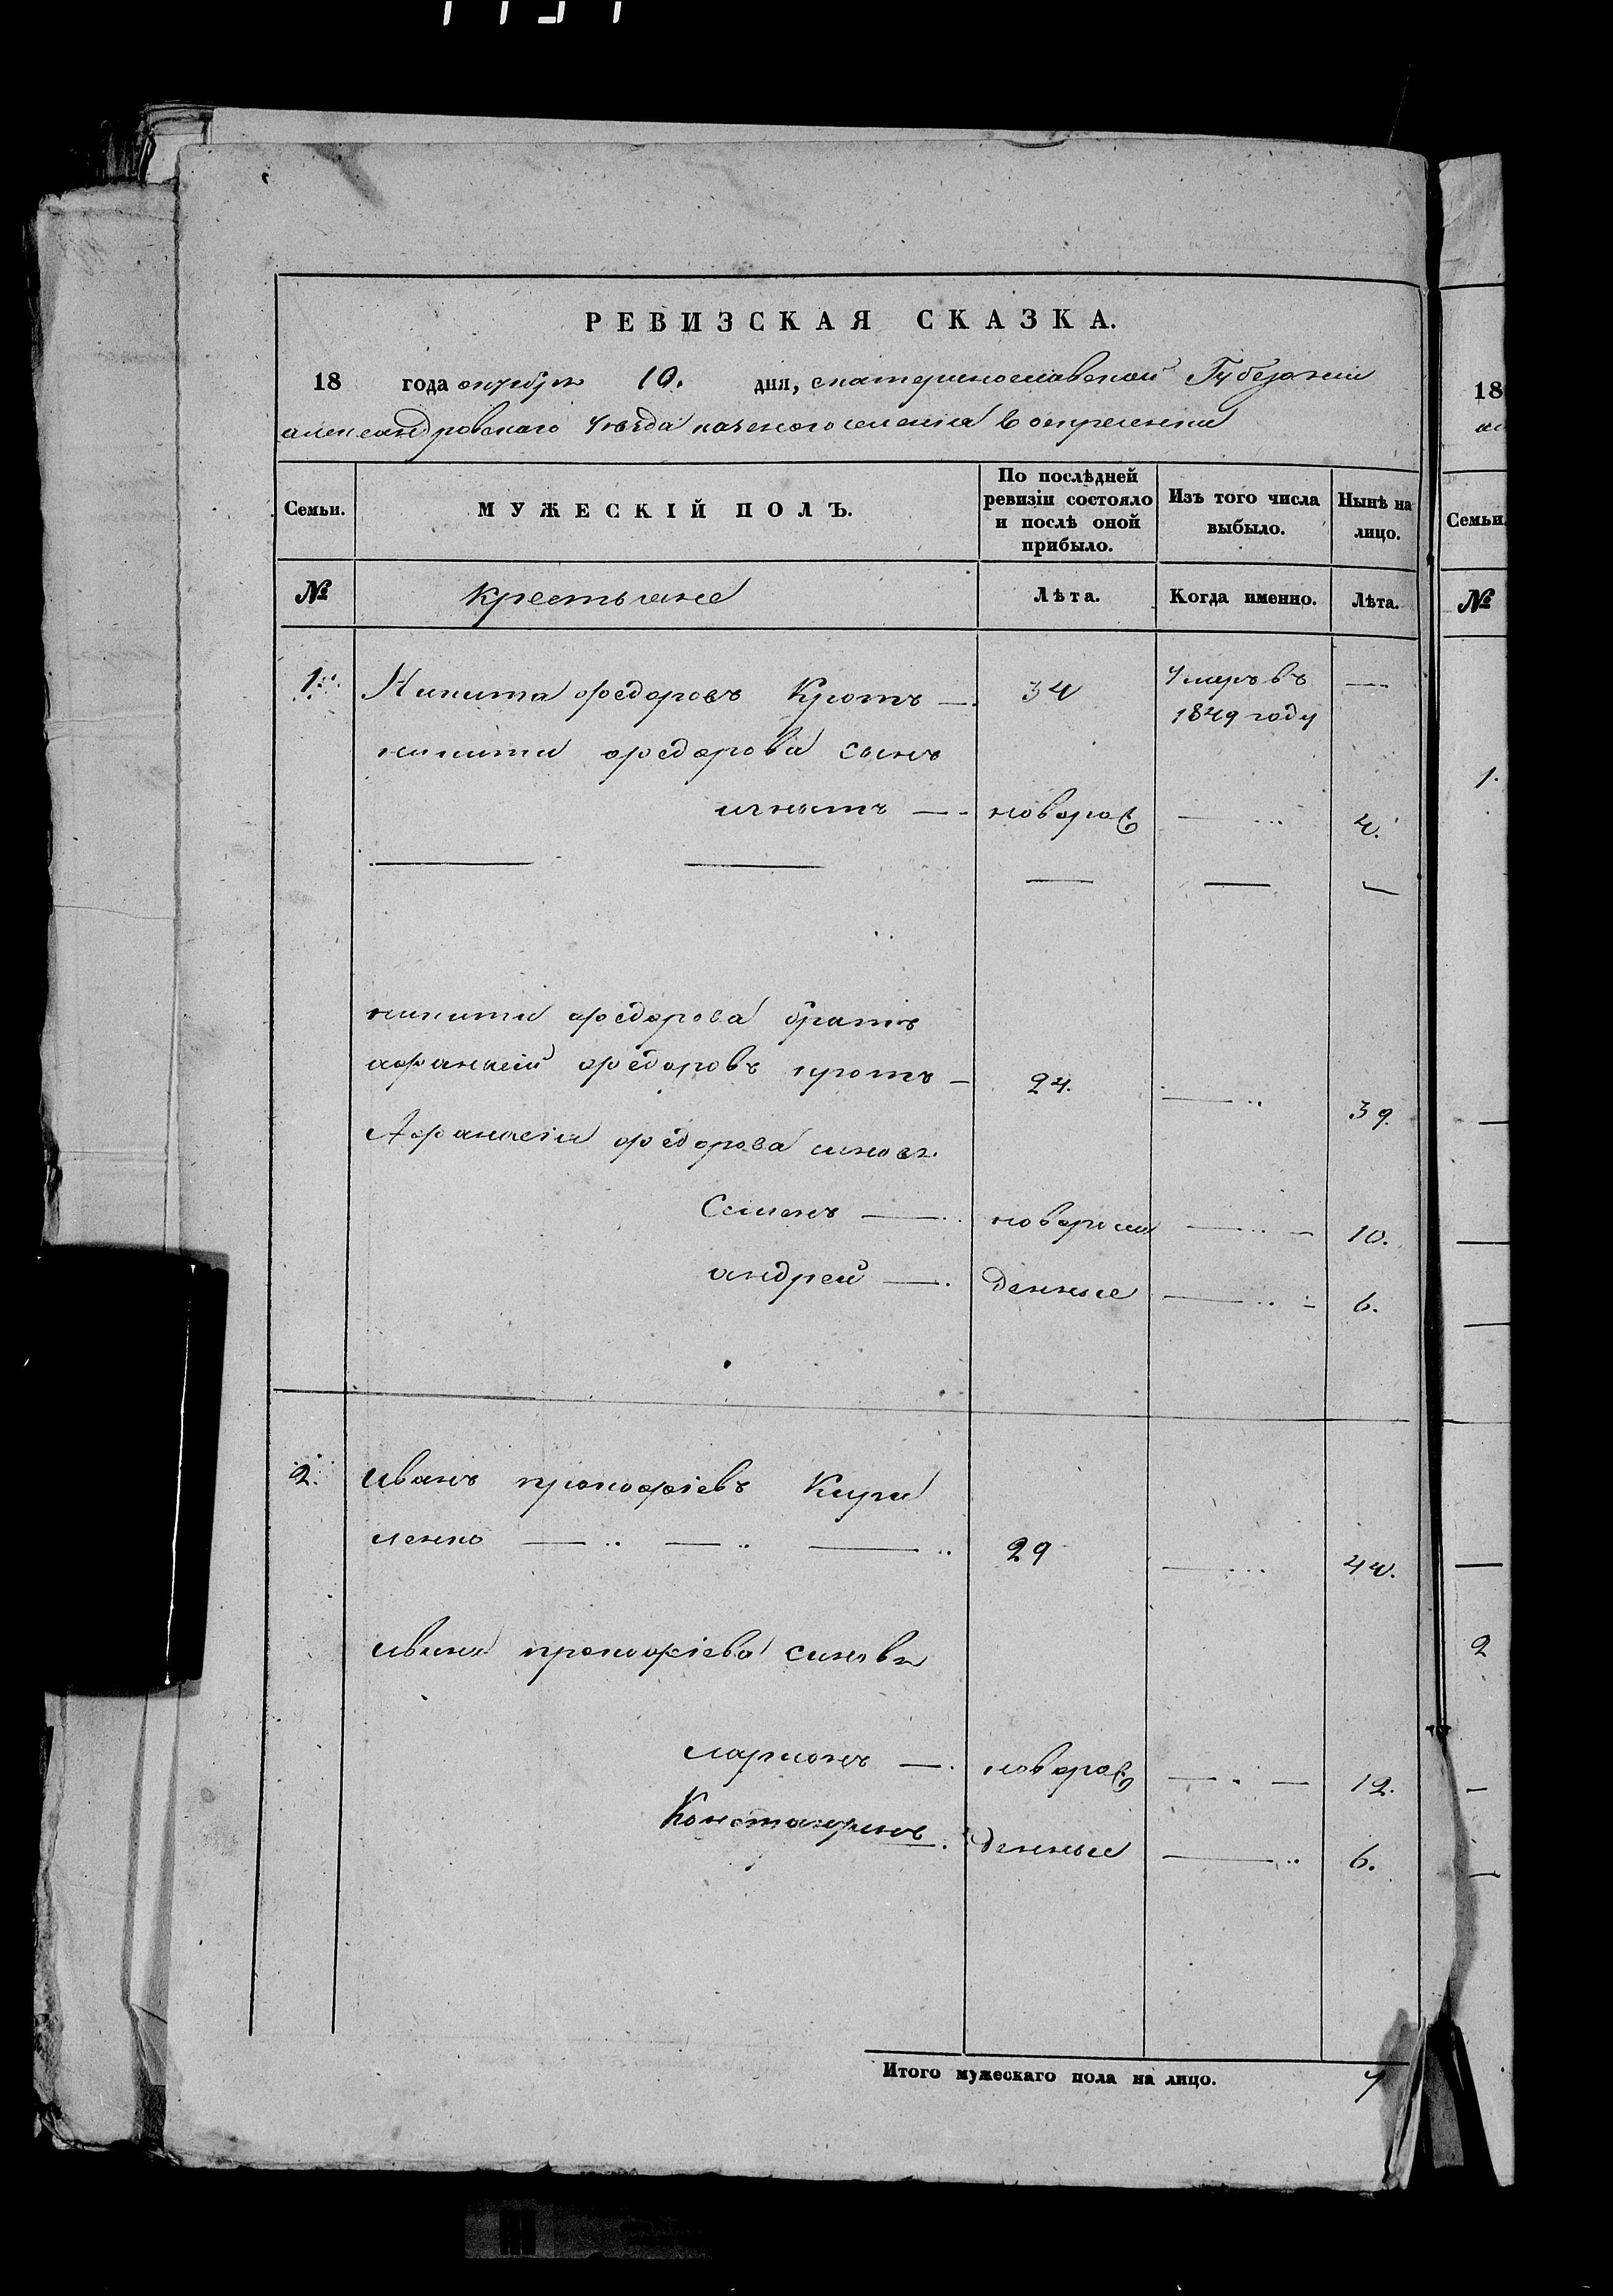 РЕВИЗСКАЯ СКАЗКА.
18 года октября 10. дня, екатеринославской Губернии
александровского уезда
Семьи.
МУЖЕСКІЙ ПОЛЪ.
По послѣдней ревизіи состояло и послѣ оной прибыло.
Изъ того числа выбыло.
Нынѣ на лицо.
№
крестьяне
Лѣта.
Когда именно.
Лѣта.
1. Никита федоровъ Кротъ — 34 умеръ въ —
1849 году
никити федорова сынъ
игнатъ — новорож — 4.
— — — — —
никити федорова братъ
афанасій федоровъ кротъ — 24. — 39.
Афанасія федорова синовя.
Семенъ — новорож — 10.
андрей — денные — 6.
2. иванъ прокофіевъ Кири
ленко — — — 29 — 44.
ивана прокофіева синови
ларионъ — новорож — 12.
Константинъ. денные — 6.
Итого мужескаго пола на лицо. 7
18
Семьи.
№
1.
2